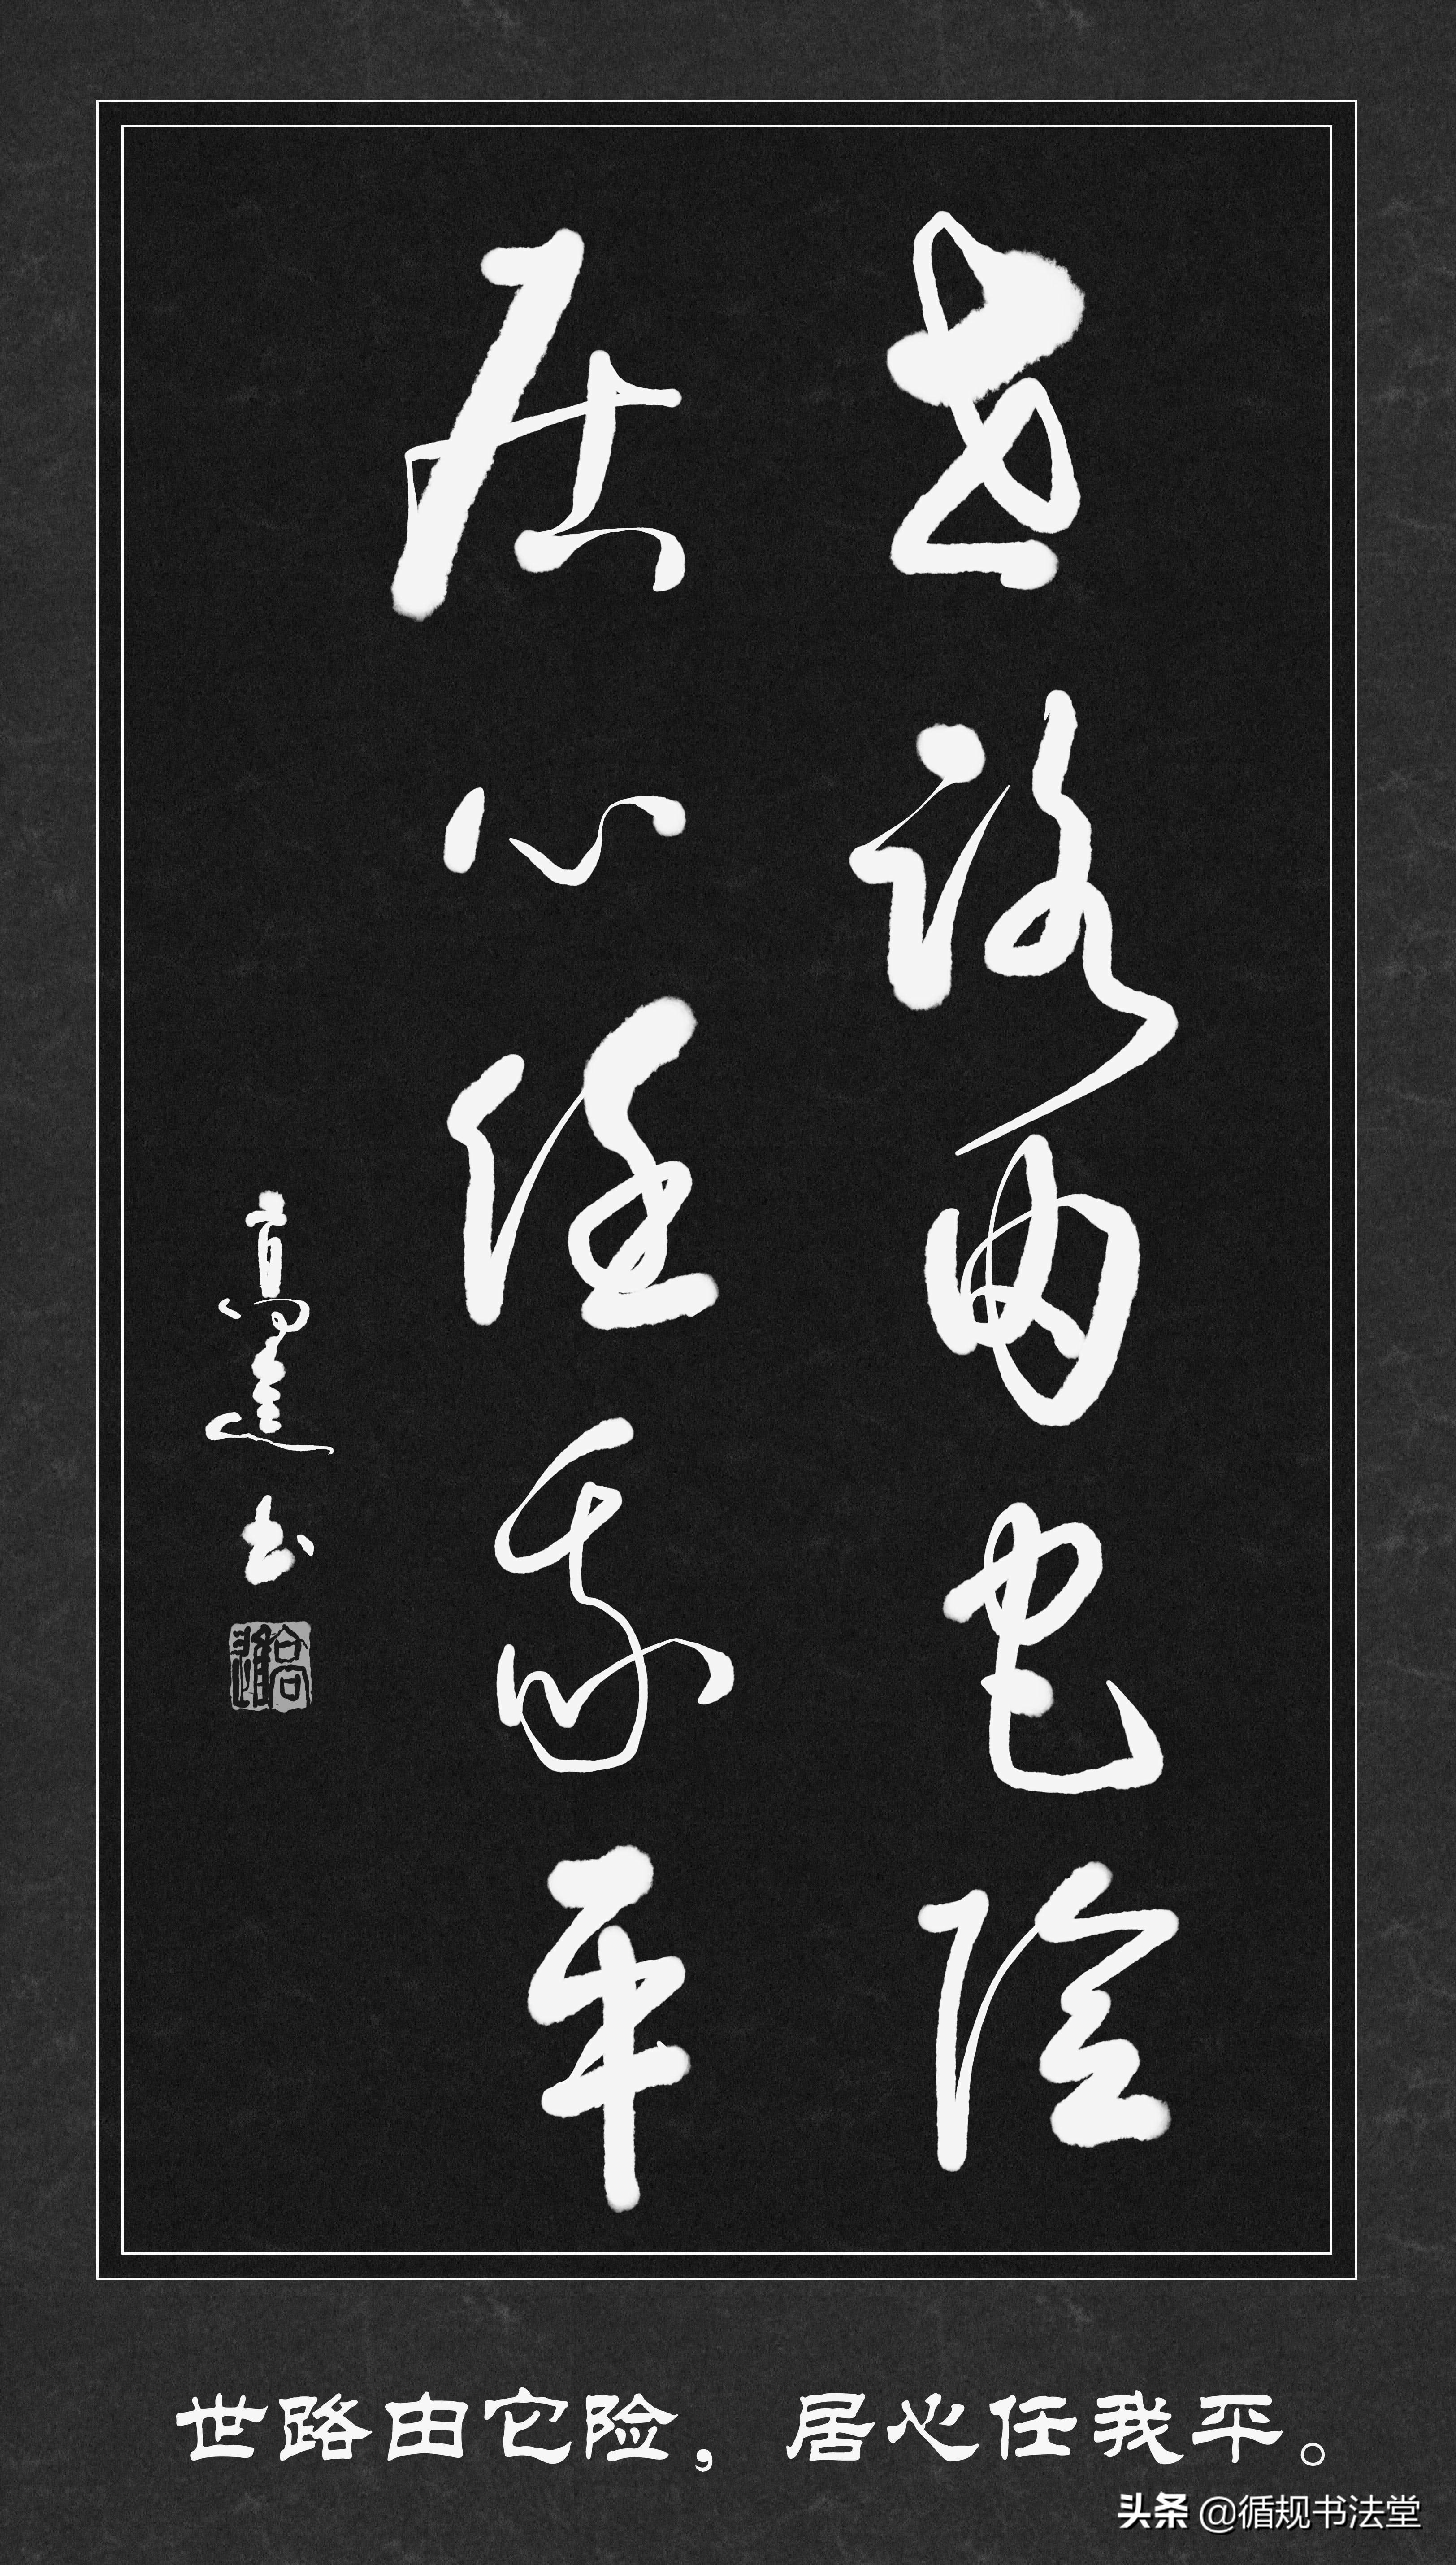 世路由它险
居心任我平
书
世路由它险，居心任我平。
头条 @循规书法堂